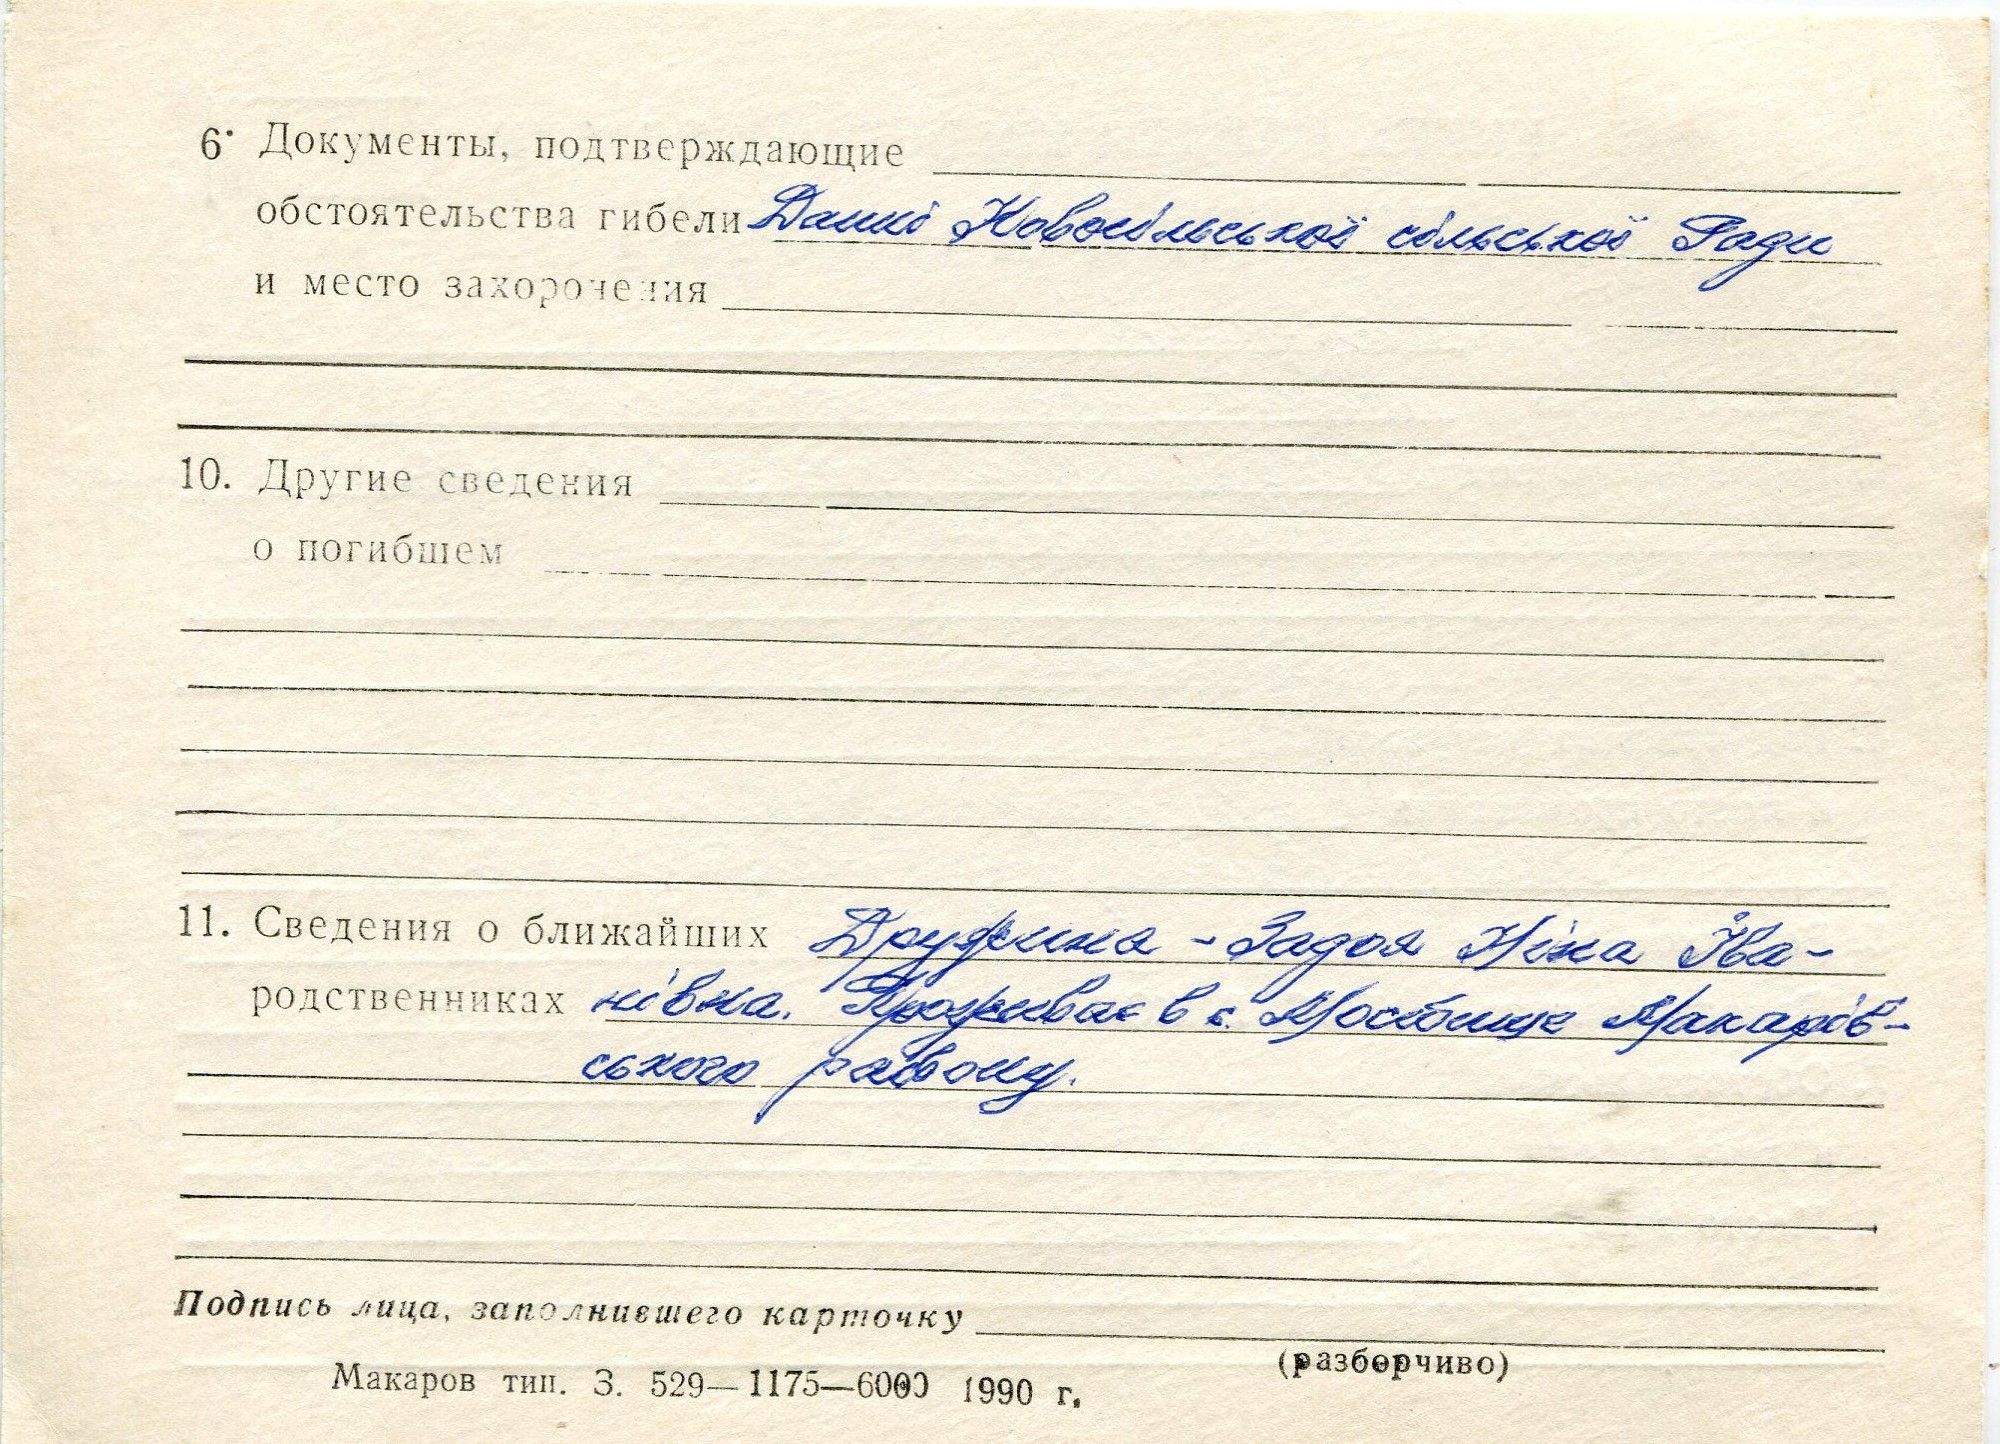 6. Документы, подтверждающие
обстоятельства гибели Данні Новосільської сільської Ради
и место захоронения
10. Другие сведения
о погибшем
11. Сведения о ближайших Дружина - Задоя Ніна Іва-
родственниках нівна. Проживає в с. Мостище Макарів-
ського району.
Подпись лица, заполнившего карточку
(разборчиво)
Макаров тип. З. 529—1175—6000 1990 г.